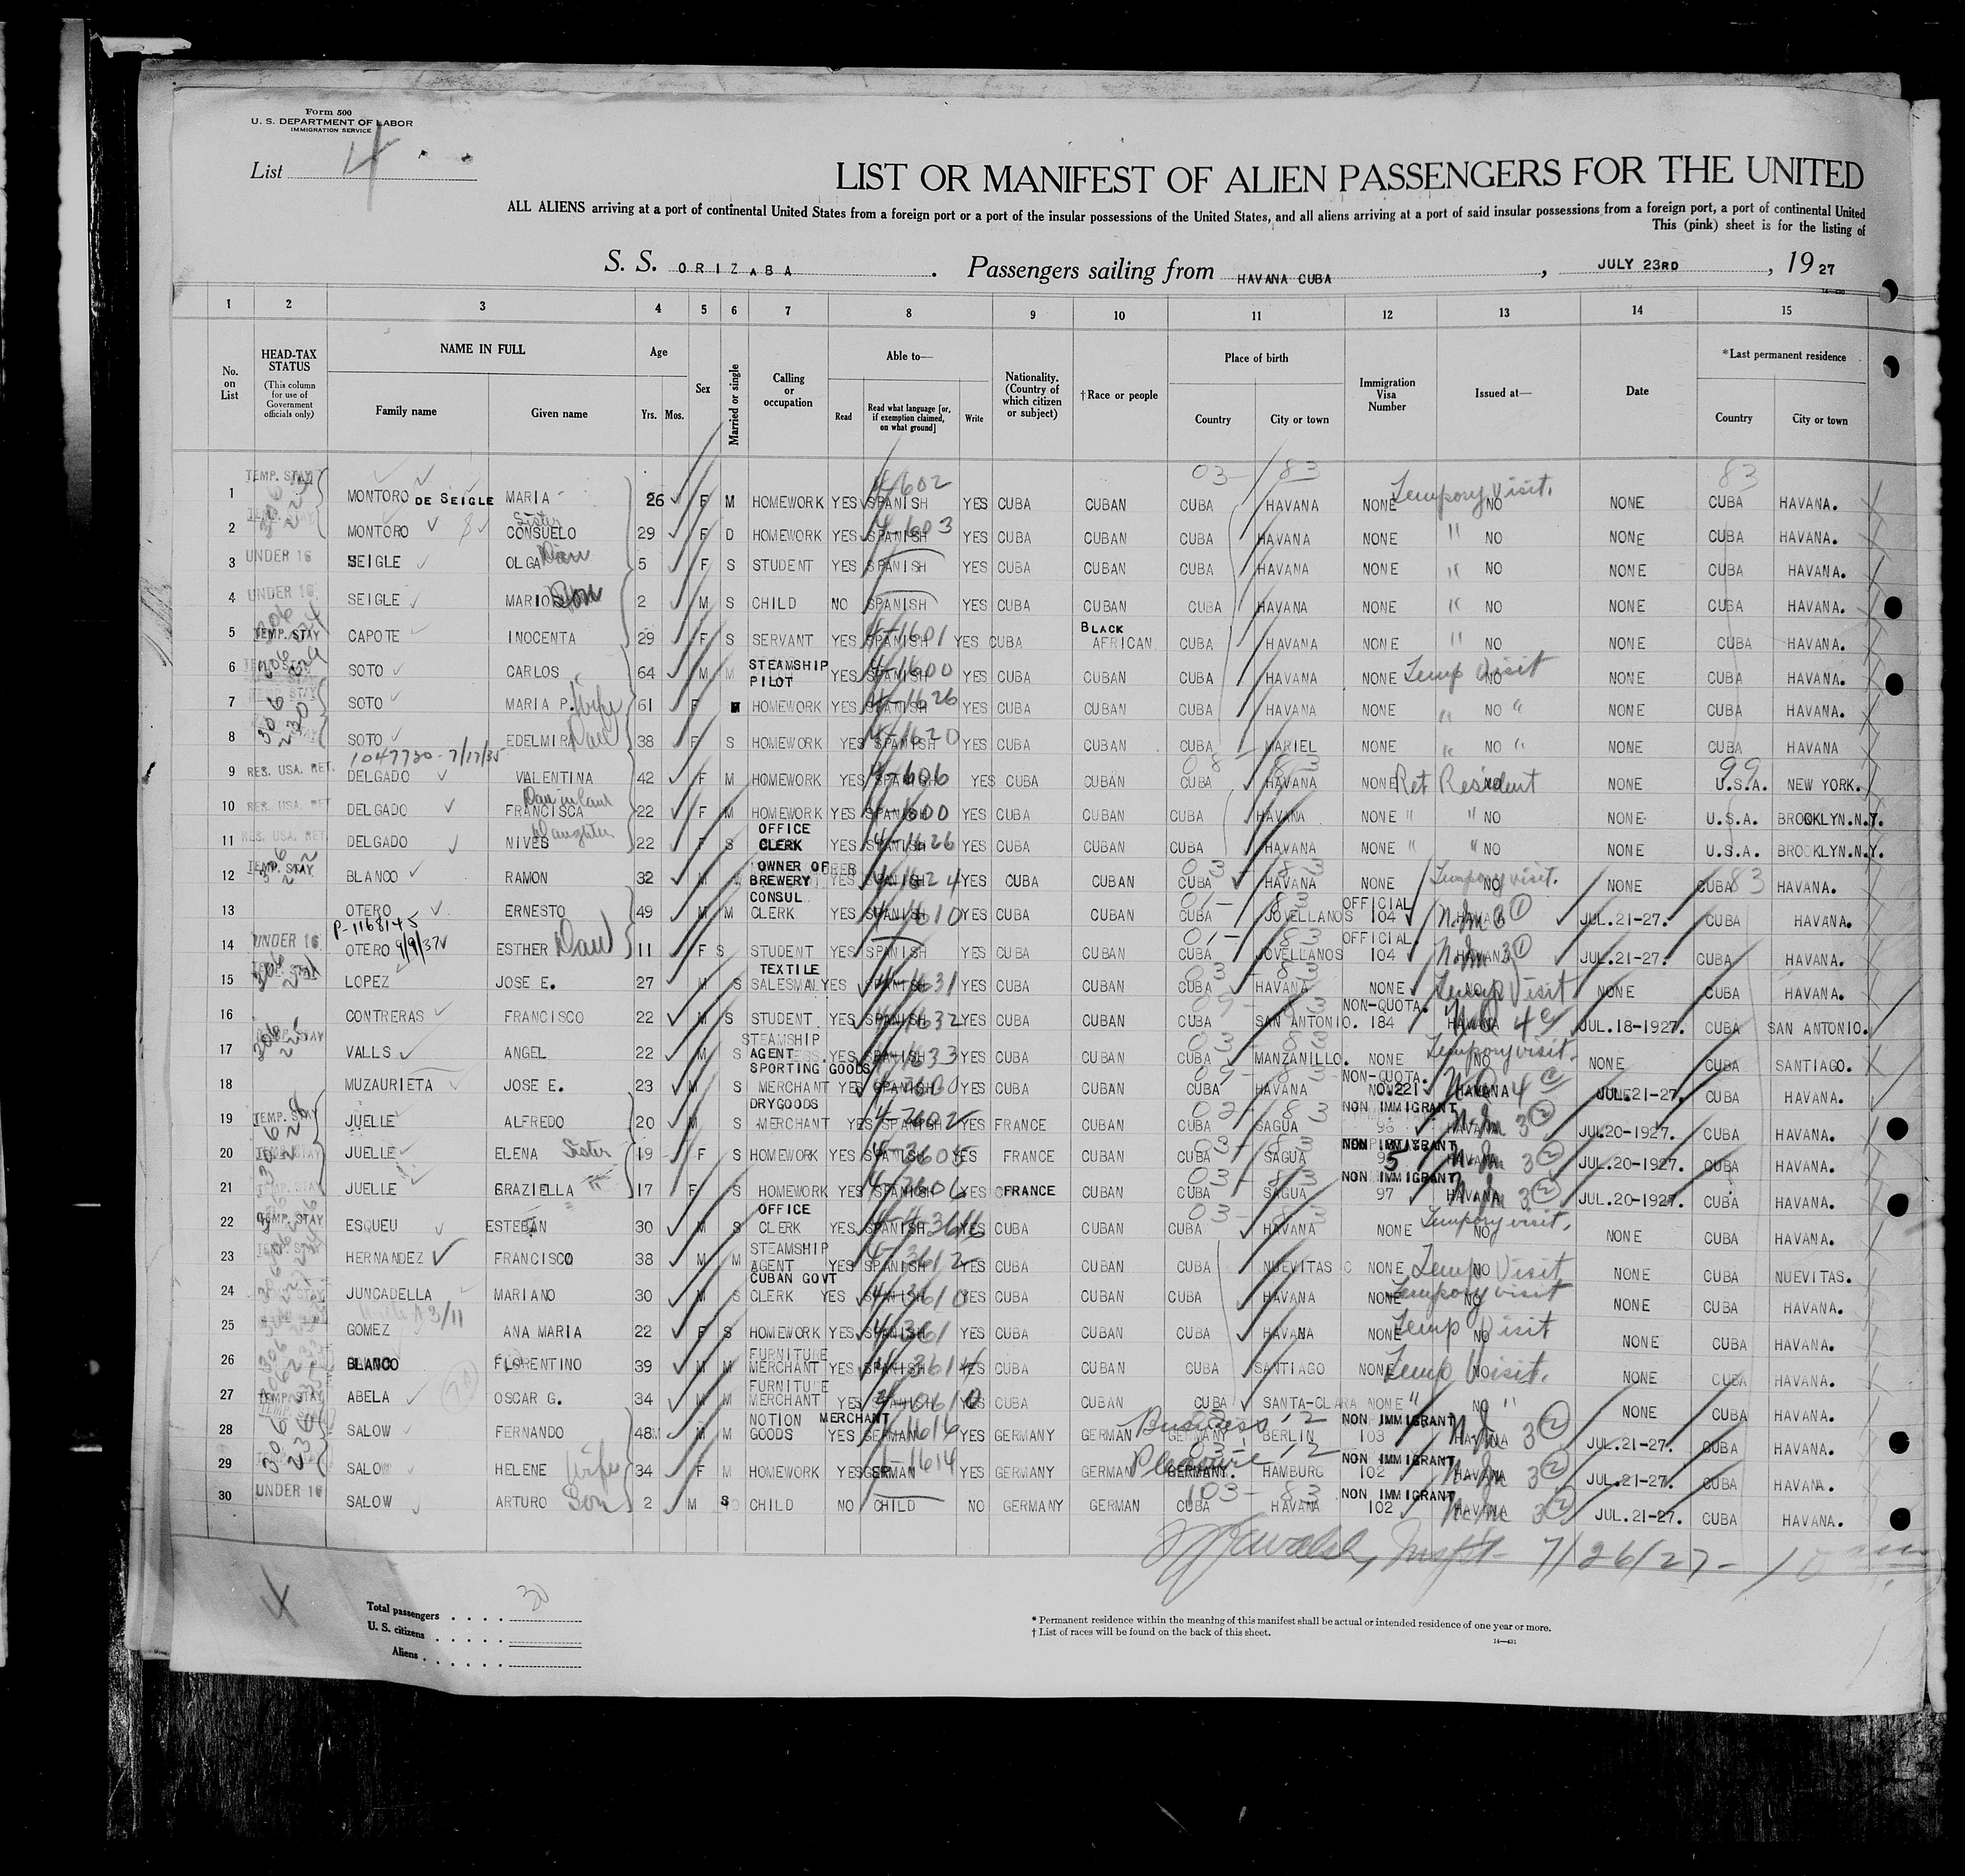 Form 500
U. S. DEPARTMENT OF LABOR
IMMIGRATION SERVICE
List 4
LIST OR MANIFEST OF ALIEN PASSENGERS FOR THE UNITED
ALL ALIENS arriving at a port of continental United States from a foreign port or a port of the insular possessions of the United States, and all aliens arriving at a port of said insular possessions from a foreign port, a port of continental United
This (pink) sheet is for the listing of
S. S. ORIZABA. Passengers sailing from HAVANA CUBA, JULY 23RD, 1927
1 2 3 4 5 6 7 8 9 10 11 12 13 14 15
No. on List HEAD-TAX STATUS (This column for use of Government officials only) NAME IN FULL Family name Given name Age Yrs. Mos. Sex Married or single Calling or occupation Able to— Read Read what language [or, if exemption claimed, on what ground] Write Nationality. (Country of which citizen or subject) †Race or people Place of birth Country City or town Immigration Visa Number Issued at— Date *Last permanent residence Country City or town
03- 83 83
1 TEMP. STAY MONTORO DE SEIGLE MARIA 26 F M HOMEWORK YES SPANISH YES CUBA CUBAN CUBA HAVANA NONE Tempory Visit. NO NONE CUBA HAVANA.
2 MONTORO Sister CONSUELO 29 F D HOMEWORK YES SPANISH YES CUBA CUBAN CUBA HAVANA NONE " NO NONE CUBA HAVANA.
3 UNDER 16 SEIGLE OLGA 5 F S STUDENT YES SPANISH YES CUBA CUBAN CUBA HAVANA NONE " NO NONE CUBA HAVANA.
4 UNDER 16 SEIGLE MARIO Son 2 M S CHILD NO SPANISH YES CUBA CUBAN CUBA HAVANA NONE " NO NONE CUBA HAVANA.
5 TEMP. STAY CAPOTE INOCENTA 29 F S SERVANT YES SPANISH YES CUBA BLACK AFRICAN CUBA HAVANA NONE " NO NONE CUBA HAVANA.
6 SOTO CARLOS 64 M M STEAMSHIP PILOT YES SPANISH YES CUBA CUBAN CUBA HAVANA NONE Temp Visit NO NONE CUBA HAVANA.
7 SOTO MARIA P. Wife 61 F M HOMEWORK YES SPANISH YES CUBA CUBAN CUBA HAVANA NONE " NO " NONE CUBA HAVANA.
8 SOTO EDELMIRA 38 F S HOMEWORK YES SPANISH YES CUBA CUBAN CUBA MARIEL NONE " NO " NONE CUBA HAVANA
1047730-7/17/35
9 RES. USA. RET. DELGADO VALENTINA 42 F M HOMEWORK YES SPANISH YES CUBA CUBAN CUBA HAVANA NONE Ret Resident NONE 99 U.S.A. NEW YORK.
10 RES. USA. RET DELGADO Dau in law FRANCISCA 22 F M HOMEWORK YES SPANISH YES CUBA CUBAN CUBA HAVANA NONE " " NO NONE U.S.A. BROOKLYN.N.Y.
11 RES. USA. RET. DELGADO NIVES Daughter 22 F S OFFICE CLERK YES SPANISH YES CUBA CUBAN CUBA HAVANA NONE " " NO NONE U.S.A. BROOKLYN.N.Y.
12 TEMP. STAY BLANCO RAMON 32 M OWNER OF BREWERY YES SPANISH YES CUBA CUBAN CUBA HAVANA NONE Tempory visit. NO NONE CUBA HAVANA.
13 OTERO ERNESTO 49 M M CONSUL CLERK YES SPANISH YES CUBA CUBAN CUBA JOVELLANOS OFFICIAL 104 HAVANA JUL.21-27. CUBA HAVANA.
P-1168145
14 UNDER 16 OTERO 9/9/37 ESTHER Dau 11 F S STUDENT YES SPANISH YES CUBA CUBAN CUBA JOVELLANOS OFFICIAL 104 HAVANA JUL.21-27. CUBA HAVANA.
15 LOPEZ JOSE E. 27 M S TEXTILE SALESMAN. YES SPANISH YES CUBA CUBAN CUBA HAVANA NONE Temp Visit NO NONE CUBA HAVANA.
16 CONTRERAS FRANCISCO 22 M S STUDENT. YES SPANISH YES CUBA CUBAN CUBA SAN ANTONIO. NON-QUOTA. 184 HAVANA JUL.18-1927. CUBA SAN ANTONIO.
17 VALLS ANGEL 22 M S STEAMSHIP AGENT YES SPANISH YES CUBA CUBAN CUBA MANZANILLO. NONE Tempory visit. NO NONE CUBA SANTIAGO.
18 MUZAURIETA JOSE E. 23 M S SPORTING GOODS MERCHANT YES SPANISH YES CUBA CUBAN CUBA HAVANA NON-QUOTA. 221 HAVANA JUL.21-27. CUBA HAVANA.
19 TEMP. STAY JUELLE ALFREDO 20 M S DRYGOODS MERCHANT YES SPANISH YES FRANCE CUBAN CUBA SAGUA NON IMMIGRANT 96 HAVANA JUL.20-1927. CUBA HAVANA.
20 JUELLE ELENA Sister 19 F S HOMEWORK YES SPANISH YES FRANCE CUBAN CUBA SAGUA NON IMMIGRANT 95 HAVANA JUL.20-1927. CUBA HAVANA.
21 JUELLE GRAZIELLA " 17 F S HOMEWORK YES SPANISH YES FRANCE CUBAN CUBA SAGUA NON IMMIGRANT 97 HAVANA JUL.20-1927. CUBA HAVANA.
22 TEMP. STAY ESQUEU ESTEBAN 30 M S OFFICE CLERK YES SPANISH YES CUBA CUBAN CUBA HAVANA NONE Tempory visit. NO NONE CUBA HAVANA.
23 HERNANDEZ FRANCISCO 38 M M STEAMSHIP AGENT YES SPANISH YES CUBA CUBAN CUBA NUEVITAS NONE Temp Visit NO NONE CUBA NUEVITAS.
24 JUNCADELLA MARIANO 30 M S CUBAN GOVT CLERK YES SPANISH YES CUBA CUBAN CUBA HAVANA NONE Tempory visit NO NONE CUBA HAVANA.
25 GOMEZ ANA MARIA 22 F S HOMEWORK YES SPANISH YES CUBA CUBAN CUBA HAVANA NONE Temp Visit NO NONE CUBA HAVANA.
26 BLANCO FLORENTINO 39 M M FURNITURE MERCHANT YES SPANISH YES CUBA CUBAN CUBA SANTIAGO NONE Temp Visit. NO NONE CUBA HAVANA.
27 TEMP. STAY ABELA OSCAR G. 34 M M FURNITURE MERCHANT YES SPANISH YES CUBA CUBAN CUBA SANTA-CLARA NONE " NO " NONE CUBA HAVANA.
28 SALOW FERNANDO 48 M M NOTION MERCHANT GOODS YES GERMAN YES GERMANY GERMAN Business GERMANY BERLIN NON IMMIGRANT 103 HAVANA JUL.21-27. CUBA HAVANA.
29 SALOW HELENE Wife 34 F M HOMEWORK YES GERMAN YES GERMANY GERMAN Pleasure GERMANY. HAMBURG NON IMMIGRANT 102 HAVANA JUL.21-27. CUBA HAVANA.
30 UNDER 16 SALOW ARTURO Son 2 M S CHILD NO CHILD NO GERMANY GERMAN CUBA HAVANA NON IMMIGRANT 102 HAVANA JUL.21-27. CUBA HAVANA.
7/26/27-
4
Total passengers 30
U. S. citizens
Aliens
* Permanent residence within the meaning of this manifest shall be actual or intended residence of one year or more.
† List of races will be found on the back of this sheet.
14—431